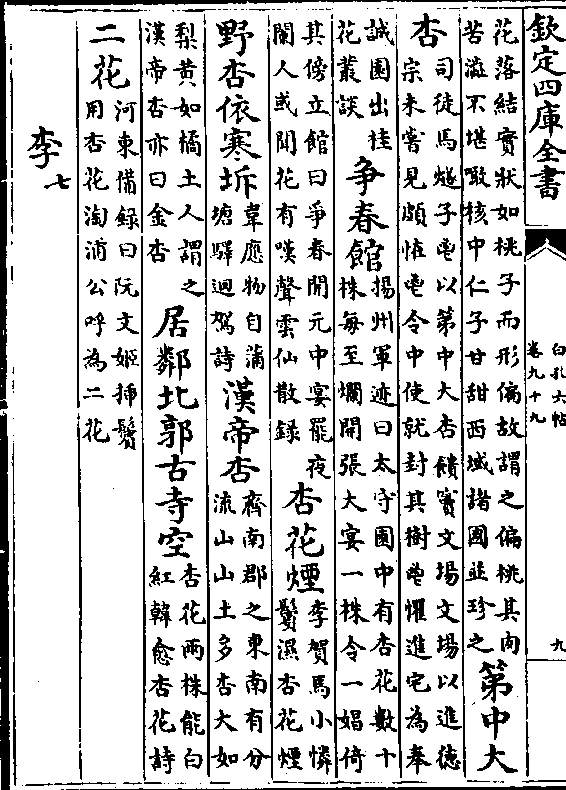 欽定四庫全書
白孔六帖
卷九十九
九
花落結實狀如桃子而形偏故謂之偏桃其肉
苦澁不堪噉核中仁子甘甜西域諸國並珍之
第中大
杏
司徒馬燧子暢以第中大杏饋竇文場文場以進德
宗未嘗見頗怪暢令中使就封其樹暢懼進宅為奉
誠園出桂
花叢談
爭春館
揚州軍迹曰太守園中有杏花數十
株每至爛開張大宴一株令一娼倚
其傍立館曰爭春開元中宴罷夜
闌人或聞花有嘆聲雲仙散録
杏花煙
李賀馬小憐
鬢濕杏花煙
野杏依寒坼
韋應物自蒲
塘驛迴駕詩
漢帝杏
齊南郡之東南有分
流山山土多杏大如
梨黄如橘土人謂之
漢帝杏亦曰金杏
居鄰北郭古寺空
杏花兩株能白
紅韓愈杏花詩
二花
河東備録曰阮文姬揷鬢
用杏花淘浦公呼為二花
李七